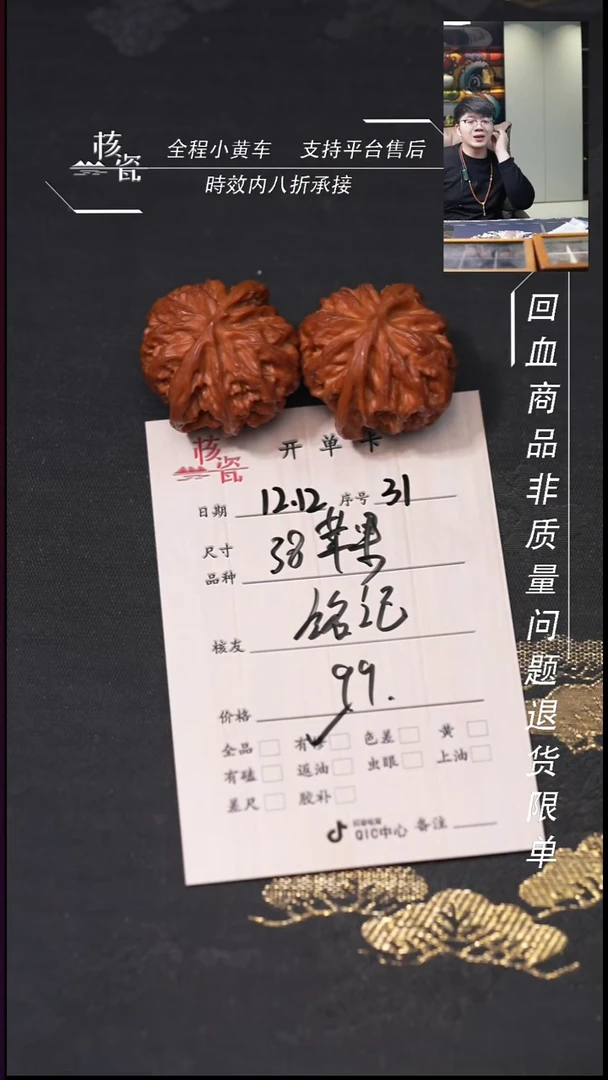 核瓷
全程小黄车 支持平台售后
時效内八折承接
回血商品非质量问题退货限单
核瓷 开单卡
日期 12.12 序号 31
尺寸
品种 38苹果
核友 铭记
价格 99.
全品 色差 黄
有磕 返油 虫眼 上油
差尺 胶补
QIC中心 备注